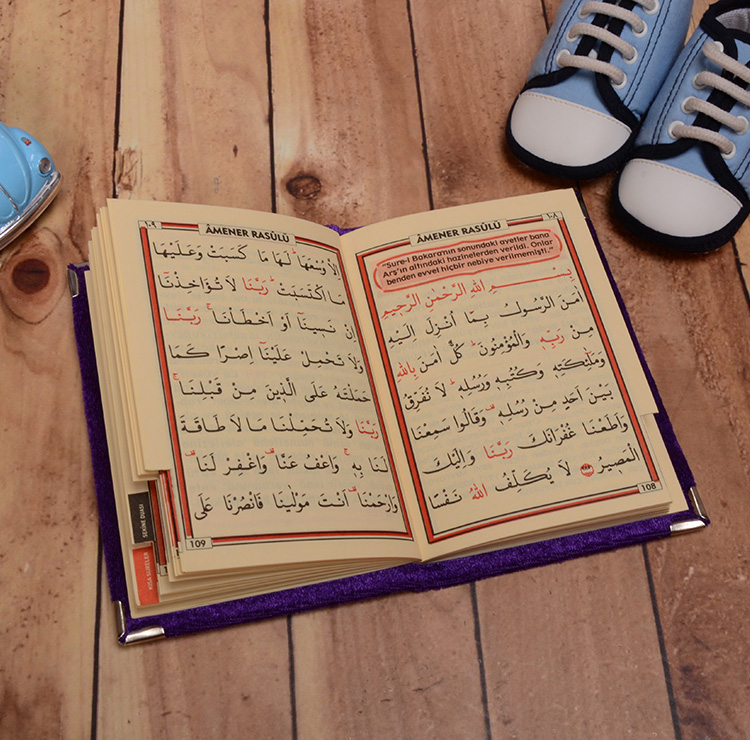 ١٠٨
ÂMENER RASÛLÜ
"Sure-i Bakara'nın sonundaki ayetler bana
Arş'ın altındaki hazinelerden verildi. Onlar
benden evvel hiçbir nebiye verilmemişti."
بِسْــمِ اللّٰهِ الرَّحْمٰنِ الرَّح۪يمِ
اٰمَنَ الرَّسُولُ بِمَٓا اُنْزِلَ اِلَيْهِ
مِنْ رَبِّه۪ وَالْمُؤْمِنُونَۜ كُلٌّ اٰمَنَ بِاللّٰهِ
وَمَلٰٓئِكَتِه۪ وَكُتُبِه۪ وَرُسُلِه۪ۜ لَا نُفَرِّقُ
بَيْنَ اَحَدٍ مِنْ رُسُلِه۪ۜ وَقَالُوا سَمِعْنَا
وَاَطَعْنَا غُفْرَانَكَ رَبَّنَا وَاِلَيْكَ
الْمَص۪يرُ ﴿٢٨٥﴾ لَا يُكَلِّفُ اللّٰهُ نَفْسًا
108
١٠٩
ÂMENER RASÛLÜ
اِلَّا وُسْعَهَاۜ لَهَا مَا كَسَبَتْ وَعَلَيْهَا
مَا اكْتَسَبَتْۜ رَبَّنَا لَا تُؤَاخِذْنَٓا
اِنْ نَس۪ينَٓا اَوْ اَخْطَأْنَاۚ رَبَّنَا
وَلَا تَحْمِلْ عَلَيْنَٓا اِصْرًا كَمَا
حَمَلْتَهُ عَلَى الَّذ۪ينَ مِنْ قَبْلِنَاۚ
رَبَّنَا وَلَا تُحَمِّلْنَا مَا لَا طَاقَةَ
لَنَا بِه۪ۚ وَاعْفُ عَنَّا۠ وَاغْفِرْ لَنَا۠
وَارْحَمْنَا۠ اَنْتَ مَوْلٰينَا فَانْصُرْنَا عَلَى
109
SEKİNE DUASI
KISA SURELER